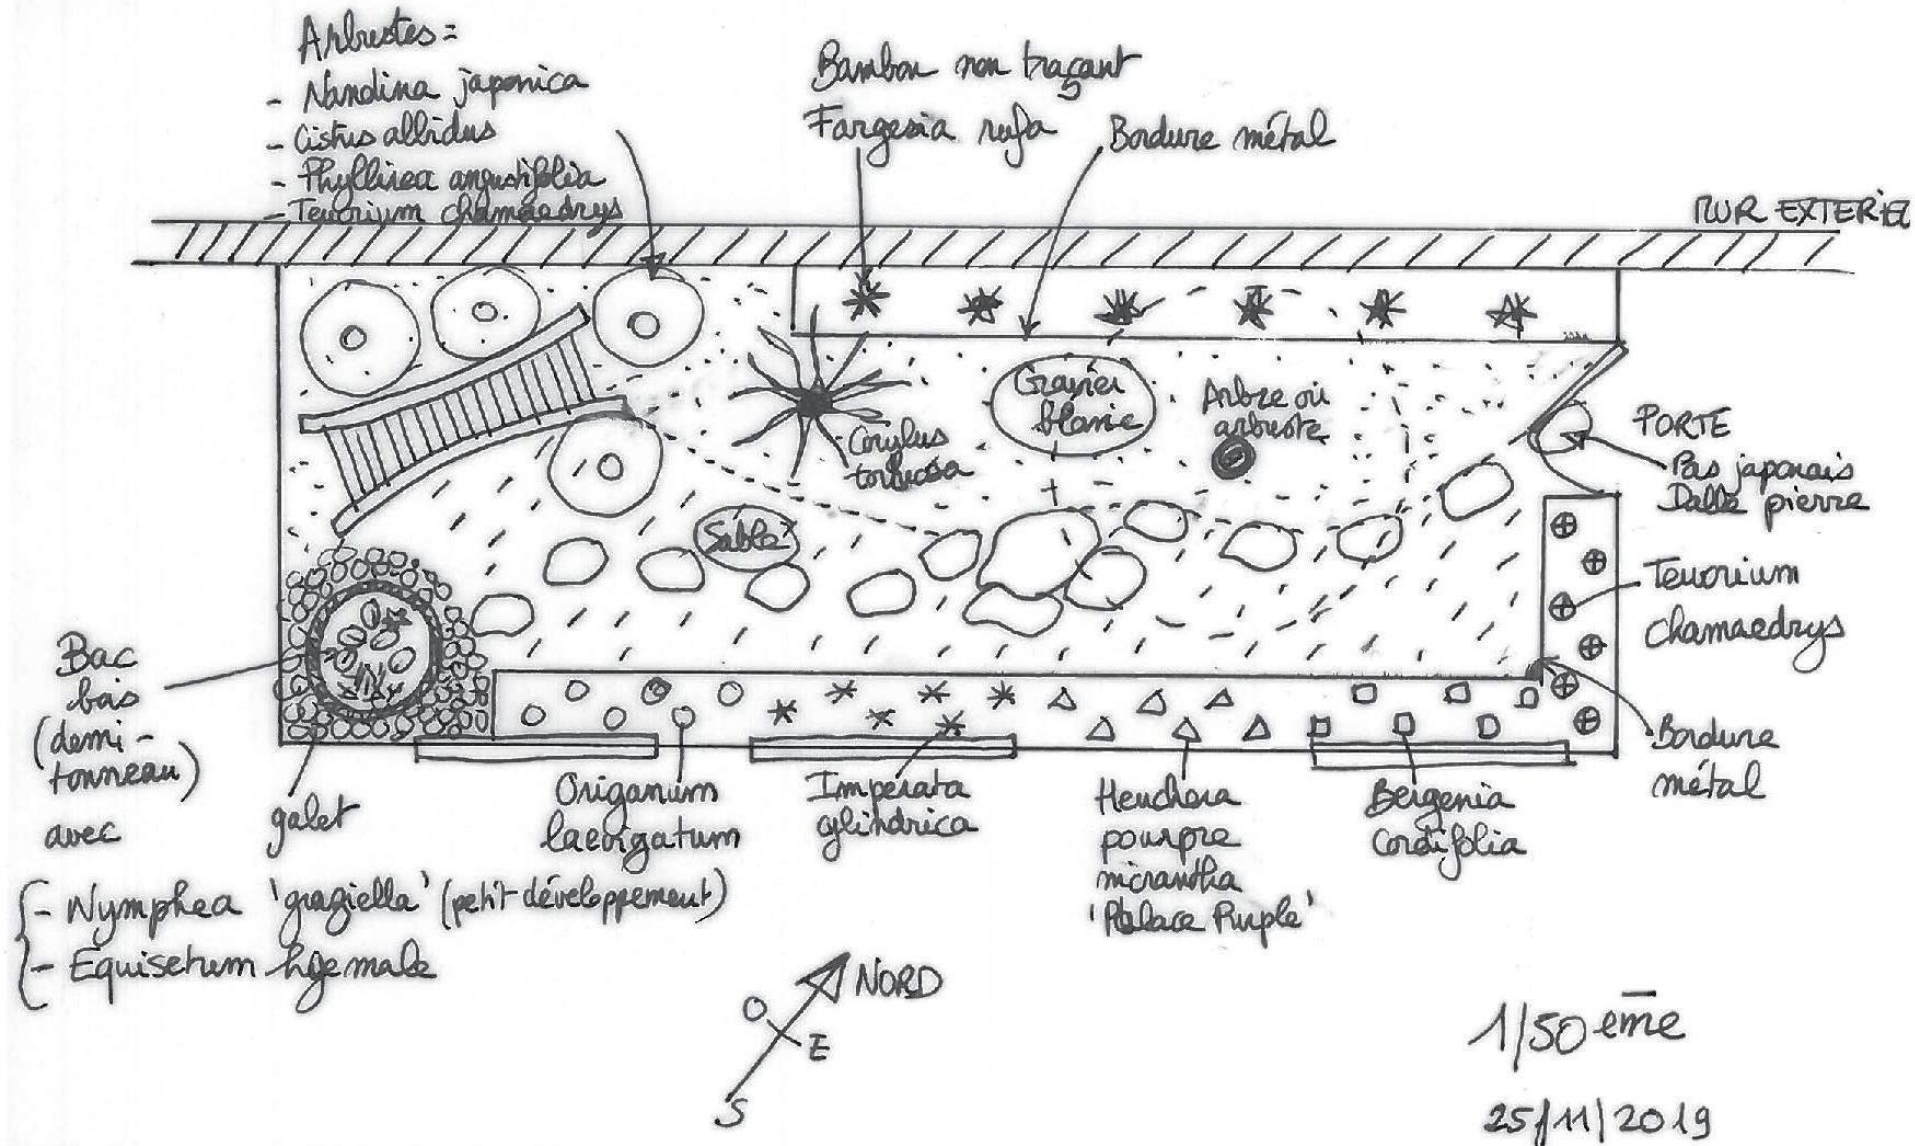 Arbustes =
- Nandina japonica
- Cistus albidus
- Phyllirea angustifolia
- Teucrium chamaedrys
Bambou non traçant
Fargesia rufa
Bordure métal
MUR EXTERIEU
Gravier
blanc
Arbre ou
arbuste
Corylus
tortuosa
PORTE
Pas japonais
Dalle pierre
Sable
Teucrium
chamaedrys
Bac
bois
(demi-
tonneau)
avec
galet
Origanum
laevigatum
Imperata
cylindrica
Heuchera
pourpre
micrantha
'Palace Purple'
Bergenia
Cordifolia
Bordure
métal
- Nymphea 'graziella' (petit développement)
- Equisetum hyemale
NORD
O
E
S
1/50 eme
25/11/2019